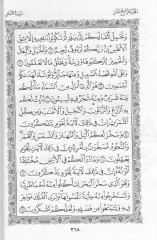 وتحمل أثقالكم إلى بلد لم تكونوا بالغيه إلا بشق
الأنفس إن ربكم لرءوف رحيم ٧ والخيل والبغال
والحمير لتركبوها وزينة ويخلق ما لا تعلمون ٨
وعلى الله قصد السبيل ومنها جائر ولو شاء لهداكم
أجمعين ٩ هو الذي أنزل من السماء ماء لكم
منه شراب ومنه شجر فيه تسيمون ١٠ ينبت لكم
به الزرع والزيتون والنخيل والأعناب ومن كل
الثمرات إن في ذلك لآية لقوم يتفكرون ١١
وسخر لكم الليل والنهار والشمس والقمر
والنجوم مسخرات بأمره إن في ذلك لآيات لقوم
يعقلون ١٢ وما ذرأ لكم في الأرض مختلفا
ألوانه إن في ذلك لآية لقوم يذكرون ١٣
وهو الذي سخر البحر لتأكلوا منه لحما طريا
وتستخرجوا منه حلية تلبسونها وترى الفلك مواخر
فيه ولتبتغوا من فضله ولعلكم تشكرون ١٤
٢٦٨